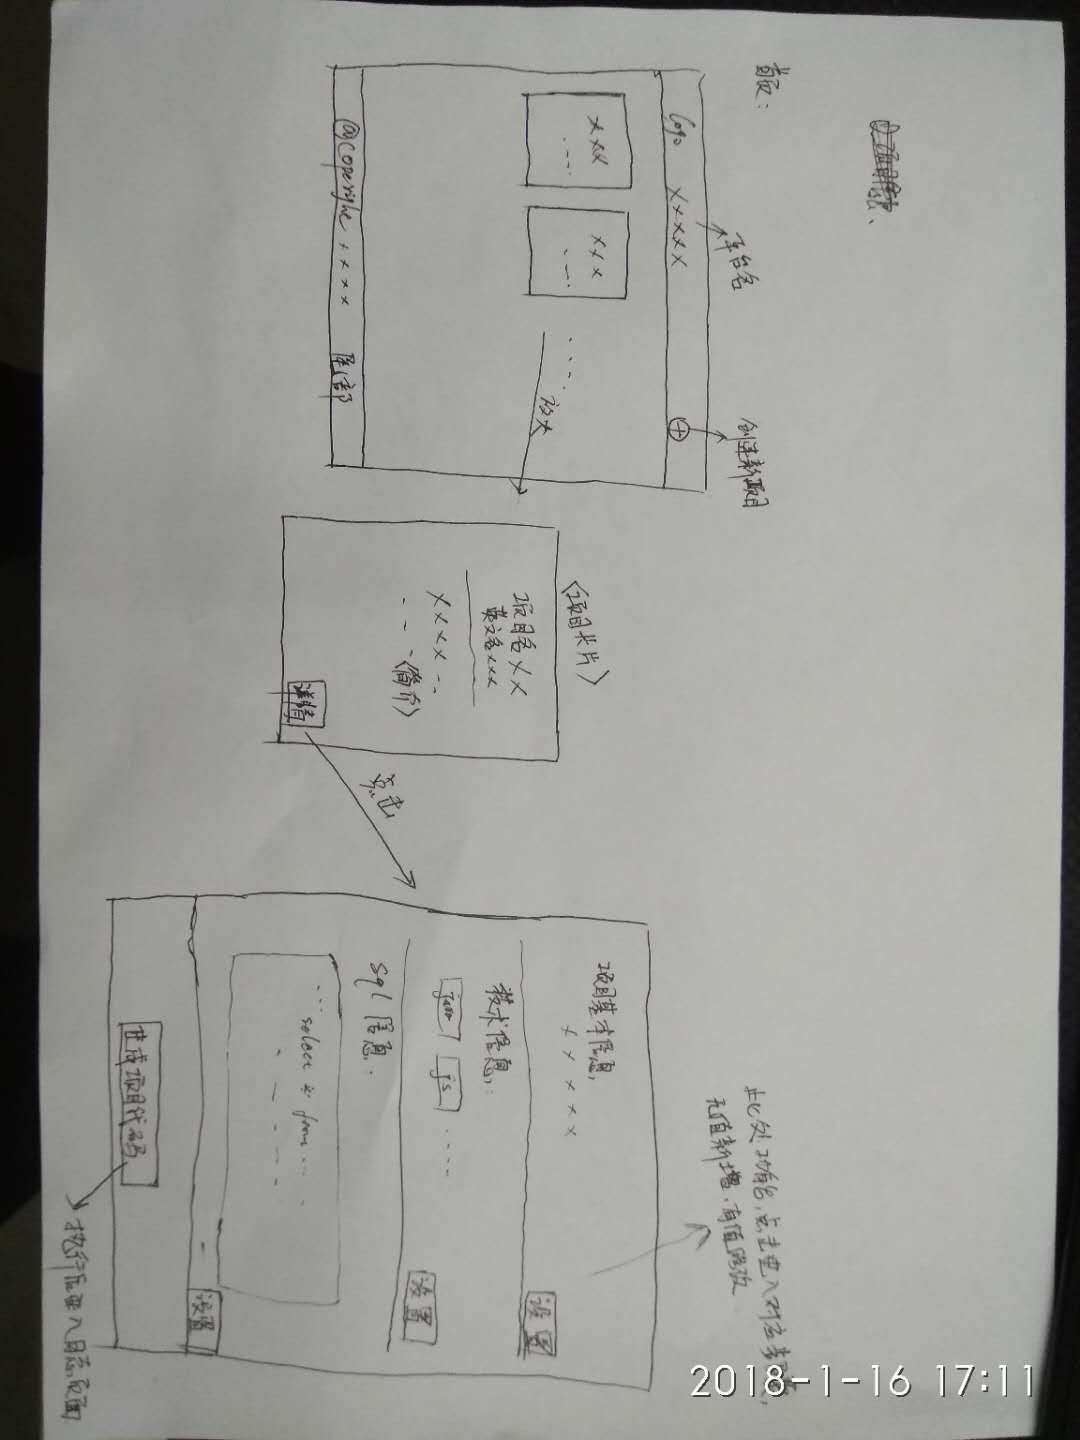 2018-1-16 17:11
首页：
平台名
创建新项目
Logo ×××××
×××
×××
放大
@Coperighe ×××× 尾部
<项目卡片>
项目名××
英文名×××
××××
<简介>
详情
点击
此处功能，点击进入对应步骤，
无值新增，有值修改
项目基本信息
×××××
设置
技术信息：
java js
设置
sql 信息.
select * from
设置
生成项目代码
执行后进入日志页面